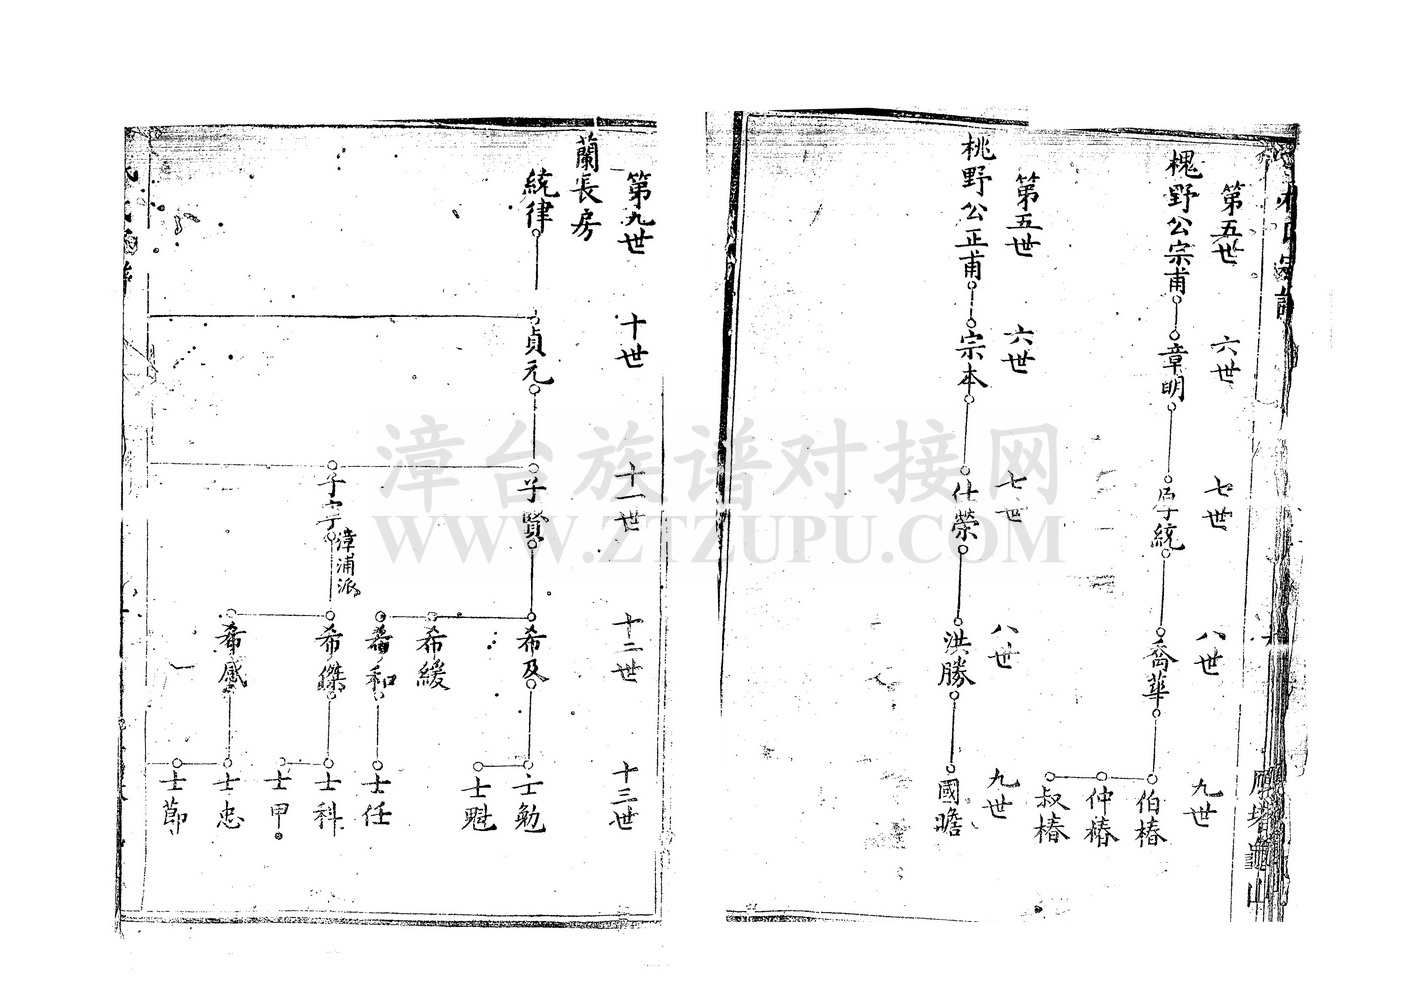 第五世
六世
七世
八世
九世
槐野公宗甫
章明
統
喬華
伯椿
仲椿
叔椿
第五世
六世
七世
八世
九世
桃野公正甫
宗本
仕榮
洪勝
國瞻
雁塔龜山
第九世
十世
十一世
十二世
十三世
蘭長房
統律
貞元
子賢
希及
士勉
士魁
希緩
希和
士任
子宇
漳浦派
希傑
士科
士甲
希感
士忠
士節
漳台族谱对接网
WWW.ZTZUPU.COM